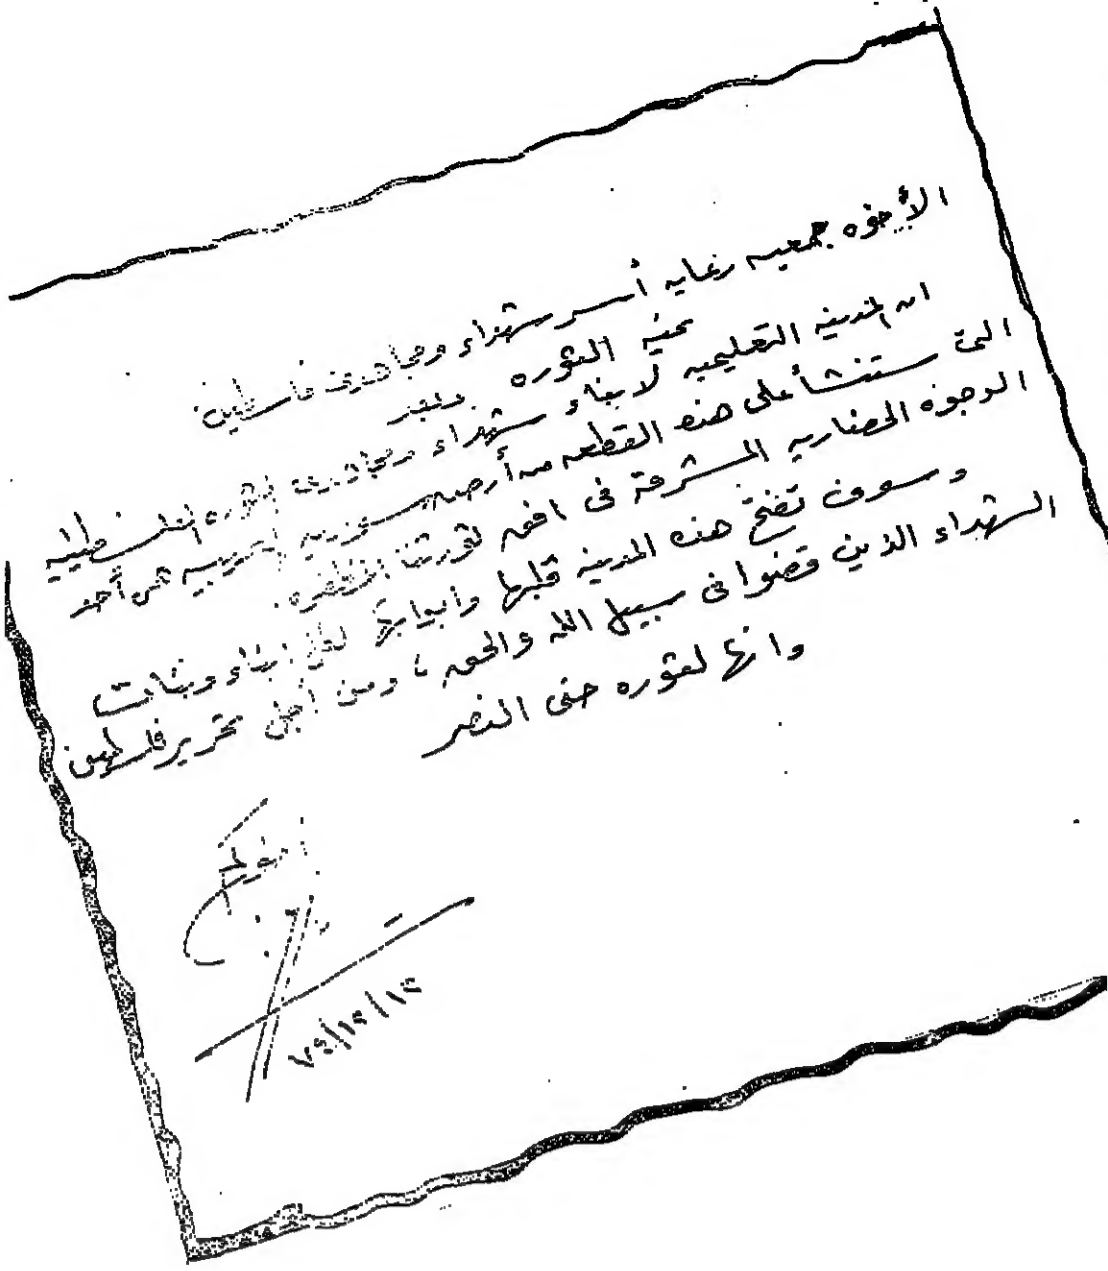 الأخوه جمعيه رعايه أسر شهداء ومجاهدى فلسطين
تحيه الثوره وبعد
ان المدينه التعليميه لابناء شهداء ومجاهدى الثوره الفلسطينيه
التى ستنشأ على هذه القطعه من أرض سوريه العربيه هى أحد
الوجوه الحضاريه المشرقة فى افق ثورتنا المظفره.
وسوف تفتح هذه المدينه قلبها وابوابها لكل ابناء وبنات
الشهداء الذين قضوا فى سبيل الله والحق ، ومن اجل تحرير فلسطين
وانها لثوره حتى النصر
٧٤/١٢/١٢